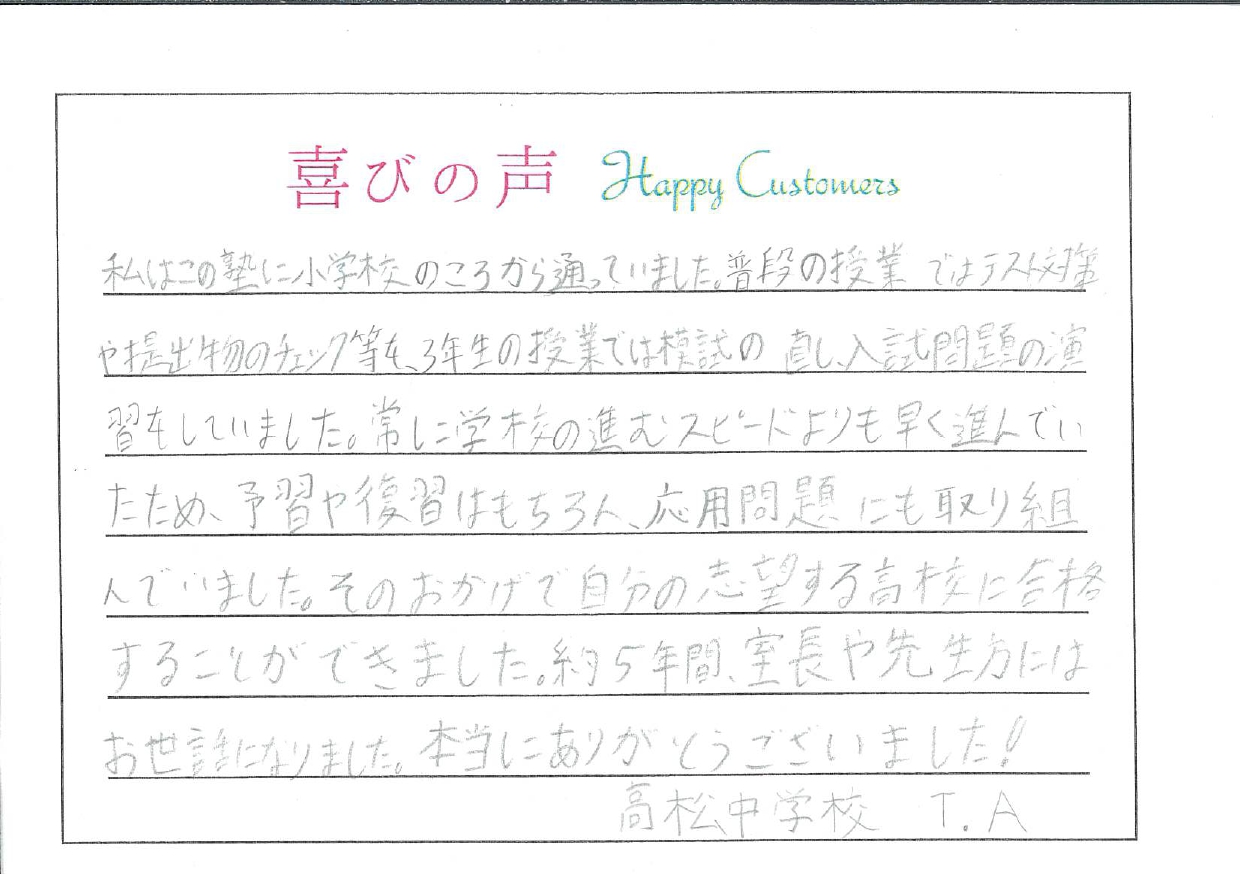 喜びの声 Happy Customers
私はこの塾に小学校のころから通っていました。普段の授業ではテスト対策
や提出物のチェック等を、3年生の授業では模試の直し、入試問題の演
習をしていました。常に学校の進むスピードよりも早く進んでい
たため、予習や復習はもちろん、応用問題にも取り組
んでいました。そのおかげで自分の志望する高校に合格
することができました。約5年間、室長や先生方には
お世話になりました。本当にありがとうございました!
高松中学校 T.A